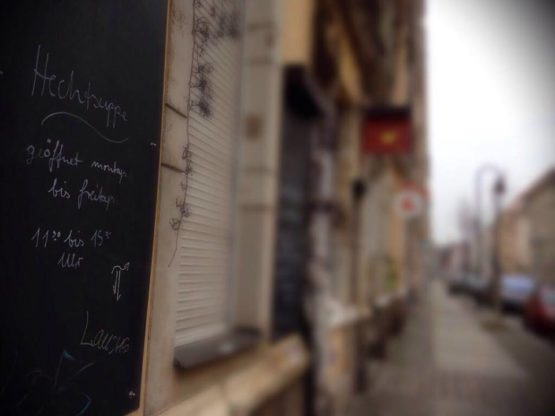 Hechtsuppe
geöffnet montags
bis freitag
11³⁰ bis 15
Uhr